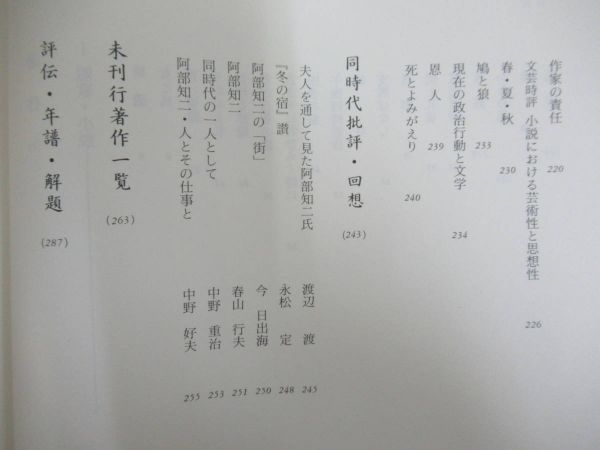 作家の責任 220
文芸時評 小説における芸術性と思想性 226
春・夏・秋 230
鳩と狼 233
現在の政治行動と文学 234
恩人 239
死とよみがえり 240
同時代批評・回想 (243)
夫人を通して見た阿部知二氏 渡辺 渡 245
『冬の宿』讃 永松 定 248
阿部知二の「街」 今 日出海 250
阿部知二 春山 行夫 251
同時代の一人として 中野 重治 253
阿部知二・人とその仕事と 中野 好夫 255
未刊行著作一覧 (263)
評伝・年譜・解題 (287)